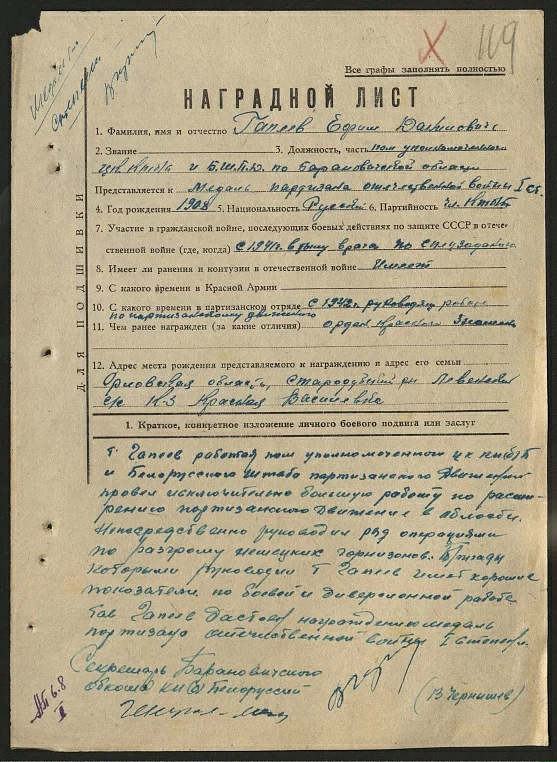 119
Все графы заполнять полностью
НАГРАДНОЙ ЛИСТ
1. Фамилия, имя и отчество Гапеев Ефим
2. Звание 3. Должность, часть пом уполномоченного
ЦК КП/б/Б и Б.Ш.П.Д. по Барановичской области
Представляется к Медаль партизана отечественной войны I ст.
4. Год рождения 1908 5. Национальность Русский 6. Партийность чл. КП/б/Б
7. Участие в гражданской войне, последующих боевых действиях по защите СССР в отече-
ственной войне (где, когда) с 1941г. в тылу врага по спецзаданию
8. Имеет ли ранения и контузии в отечественной войне Имеет
9. С какого времени в Красной Армии
10. С какого времени в партизанском отряде с 1942г. руководящ работе
по партизанскому движению
11. Чем ранее награжден (за какие отличия) орден Красного Знамени
12. Адрес места рождения представляемого к награждению и адрес его семьи
Орловская область, Стародубский рн
с/с К-З Красная
ДЛЯ ПОДШИВКИ
1. Краткое, конкретное изложение личного боевого подвига или заслуг
т. Гапеев работая пом уполномоченного ЦК КП/б/Б
и Белорусского штаба партизанского движения
провел исключительно большую работу по расши-
рению партизанского движения в области.
Непосредственно руководил ряд операциями
по разгрому немецких гарнизонов. Бригады
которыми руководил т Гапеев имеют хорошие
показатели по боевой и диверсионной работе
тов Гапеев достоен награждению медаль
партизана отечественной войны I степени.
Секретарь Барановичского
обкома КП(б) Белоруссии
(В Чернышев)